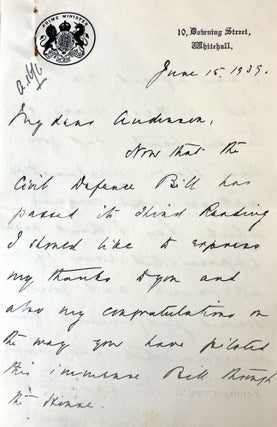 PRIME MINISTER
10, Downing Street,
Whitehall.
June 15 1939.
My dear Anderson,
Now that the
Civil Defence Bill has
passed its Third Reading
I should like to express
my thanks to you and
also my congratulations on
the way you have piloted
this immense Bill through
the House.